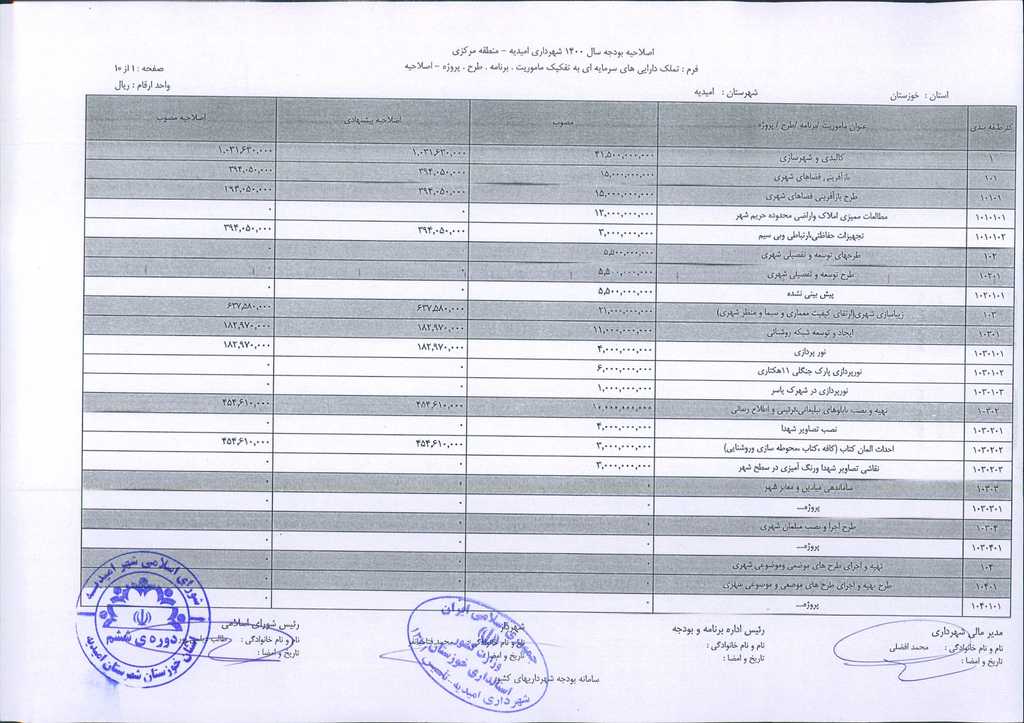 اصلاحیه بودجه سال ۱۴۰۰ شهرداری امیدیه - منطقه مرکزی
فرم : تملک دارایی های سرمایه ای به تفکیک ماموریت . برنامه . طرح . پروژه - اصلاحیه
صفحه : ۱ از ۱۰
واحد ارقام : ریال
استان : خوزستان
شهرستان : امیدیه
کد طبقه بندی عنوان ماموریت /برنامه /طرح / پروژه مصوب اصلاحیه پیشنهادی اصلاحیه مصوب
۱ کالبدی و شهرسازی ۴۱,۵۰۰,۰۰۰,۰۰۰ ۱,۰۳۱,۶۳۰,۰۰۰ ۱,۰۳۱,۶۳۰,۰۰۰
۱۰۱ بازآفرینی فضاهای شهری ۱۵,۰۰۰,۰۰۰,۰۰۰ ۳۹۴,۰۵۰,۰۰۰ ۳۹۴,۰۵۰,۰۰۰
۱۰۱۰۱ طرح بازآفرینی فضاهای شهری ۱۵,۰۰۰,۰۰۰,۰۰۰ ۳۹۴,۰۵۰,۰۰۰ ۱۹۴,۰۵۰,۰۰۰
۱۰۱۰۱۰۱ مطالعات ممیزی املاک واراضی محدوده حریم شهر ۱۲,۰۰۰,۰۰۰,۰۰۰ ۰ ۰
۱۰۱۰۱۰۲ تجهیزات حفاظتی،ارتباطی وبی سیم ۳,۰۰۰,۰۰۰,۰۰۰ ۳۹۴,۰۵۰,۰۰۰ ۳۹۴,۰۵۰,۰۰۰
۱۰۲ طرحهای توسعه و تفصیلی شهری ۵,۵۰۰,۰۰۰,۰۰۰ ۰
۱۰۲۰۱ طرح توسعه و تفصیلی شهری ۵,۵۰۰,۰۰۰,۰۰۰ ۰ ۰
۱۰۲۰۱۰۱ پیش بینی نشده ۵,۵۰۰,۰۰۰,۰۰۰ ۰ ۰
۱۰۳ زیباسازی شهری(ارتقای کیفیت معماری و سیما و منظر شهری) ۲۱,۰۰۰,۰۰۰,۰۰۰ ۶۳۷,۵۸۰,۰۰۰ ۶۳۷,۵۸۰,۰۰۰
۱۰۳۰۱ ایجاد و توسعه شبکه روشنائی ۱۱,۰۰۰,۰۰۰,۰۰۰ ۱۸۲,۹۷۰,۰۰۰ ۱۸۲,۹۷۰,۰۰۰
۱۰۳۰۱۰۱ نور پردازی ۴,۰۰۰,۰۰۰,۰۰۰ ۱۸۲,۹۷۰,۰۰۰ ۱۸۲,۹۷۰,۰۰۰
۱۰۳۰۱۰۲ نورپردازی پارک جنگلی ۱۱هکتاری ۶,۰۰۰,۰۰۰,۰۰۰ ۰ ۰
۱۰۳۰۱۰۳ نورپردازی در شهرک یاسر ۱,۰۰۰,۰۰۰,۰۰۰ ۰ ۰
۱۰۳۰۲ تهیه و نصب تابلوهای تبلیغاتی،تزئینی و اطلاع رسانی ۱۰,۰۰۰,۰۰۰,۰۰۰ ۴۵۴,۶۱۰,۰۰۰ ۴۵۴,۶۱۰,۰۰۰
۱۰۳۰۲۰۱ نصب تصاویر شهدا ۴,۰۰۰,۰۰۰,۰۰۰ ۰ ۰
۱۰۳۰۲۰۲ احداث المان کتاب (کافه ،کتاب ،محوطه سازی وروشنایی) ۳,۰۰۰,۰۰۰,۰۰۰ ۴۵۴,۶۱۰,۰۰۰ ۴۵۴,۶۱۰,۰۰۰
۱۰۳۰۲۰۳ نقاشی تصاویر شهدا ورنگ آمیزی در سطح شهر ۳,۰۰۰,۰۰۰,۰۰۰ ۰ ۰
۱۰۳۰۳ ساماندهی میادین و معابر شهر ۰ ۰ ۰
۱۰۳۰۳۰۱ پروژه... ۰ ۰ ۰
۱۰۳۰۴ طرح اجرا و نصب مبلمان شهری ۰ ۰ ۰
۱۰۳۰۴۰۱ پروژه... ۰ ۰ ۰
۱۰۴ تهیه و اجرای طرح های موضعی وموضوعی شهری ۰ ۰ ۰
۱۰۴۰۱ طرح تهیه و اجرای طرح های موضعی و موضوعی شهری ۰ ۰ ۰
۱۰۴۰۱۰۱ پروژه... ۰ ۰
مدیر مالی شهرداری
نام و نام خانوادگی : محمد افضلی
تاریخ و امضا :
رئیس اداره برنامه و بودجه
نام و نام خانوادگی :
تاریخ و امضا :
شهردار
نام و نام خانوادگی : محمد
تاریخ و امضا :
رئیس شورای اسلامی
نام و نام خانوادگی : طالب
تاریخ و امضا :
سامانه بودجه شهرداریهای کشور
جمهوری اسلامی ایران
وزارت کشور
استانداری خوزستان
شهرداری امیدیه
شورای اسلامی شهر امیدیه
دوره ی ششم
استان خوزستان شهرستان امیدیه